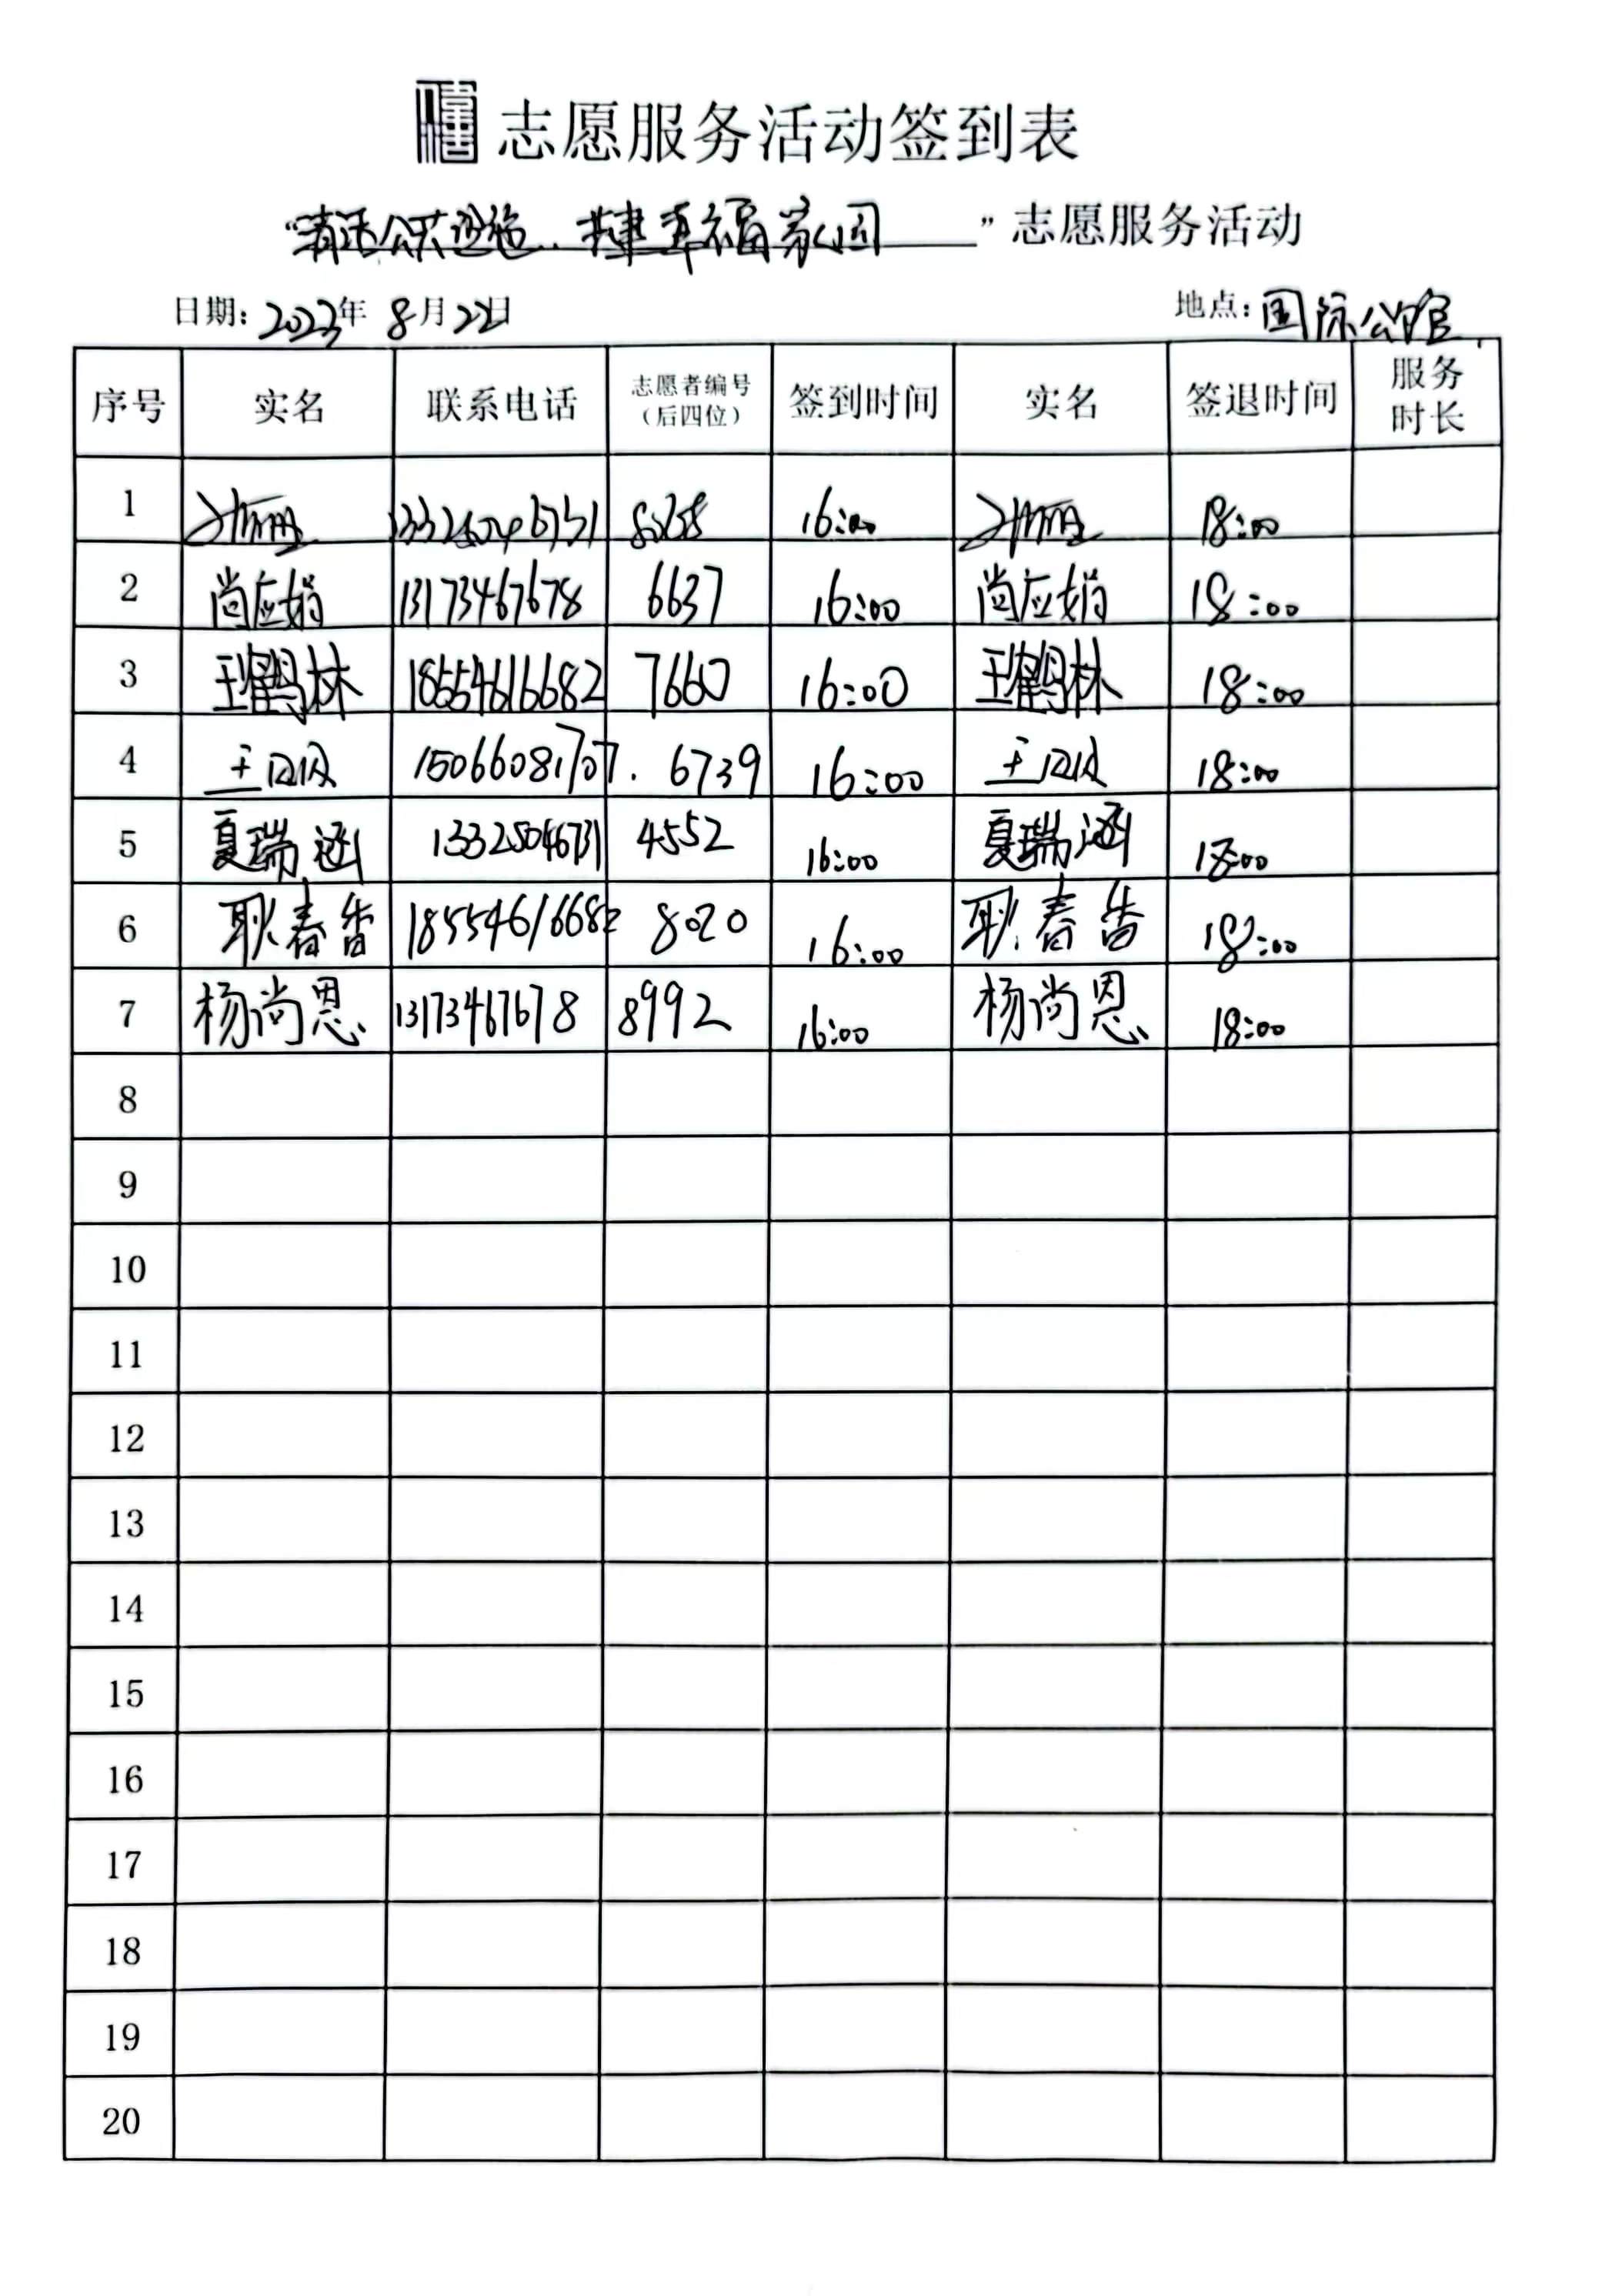 志愿服务活动签到表
“清洁公共设施，共建幸福家园”志愿服务活动
日期：2023年8月22日 地点：国际公馆
序号 实名 联系电话 志愿者编号（后四位） 签到时间 实名 签退时间 服务时长
1 16:00 18:00
2 尚应娟 13173467678 6637 16:00 尚应娟 18:00
3 王鹤林 18554616682 7660 16:00 王鹤林 18:00
4 15066081707. 6739 16:00 18:00
5 夏瑞涵 13325046731 4552 16:00 夏瑞涵 18:00
6 耿春香 18554616682 8020 16:00 耿春香 18:00
7 杨尚恩 13173467678 8992 16:00 杨尚恩 18:00
8
9
10
11
12
13
14
15
16
17
18
19
20